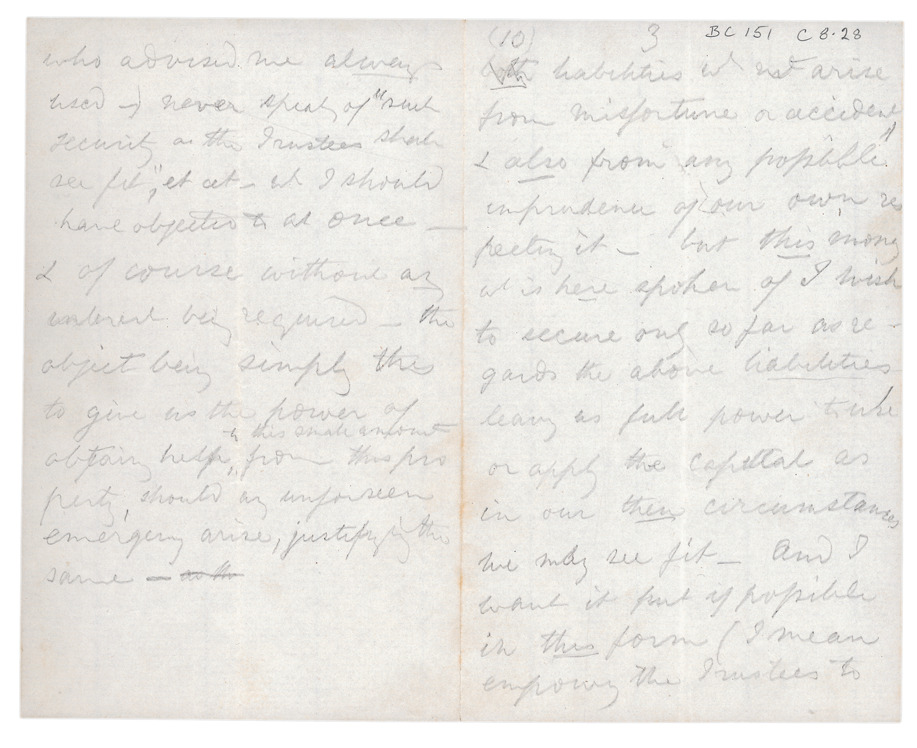 who advised me always
used — & never speak of "such
security as the Trustees shall
see fit", et cet — wh I should
have objected to at once —
& of course without any
interest being required — the
object being simply this
to give us the power of
in this small amount
obtaing help, from this pro
perty, should any unforseen
emergency arise, justifying the
same — as the
(10) 3 BC 151 C 8.28
liabilities wd not arise
from misfortune or accident
& also from any possible
imprudence of our own res
pecting it — but this money
wh is here spoken of I wish
to secure only so far as re-
gards the above liabilities
leavg us full power to use
or apply the capital as
in our then circumstances
we may see fit — And I
want it put if possible
in this form (I mean
empowerg the Trustees to